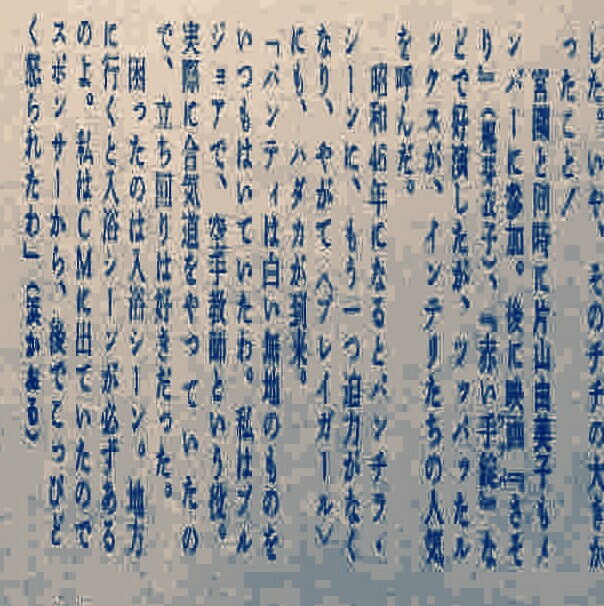 した。いや、そのチチの大きか
ったこと！
宮園と同時に片山由美子もメ
ンバーに参加。後に映画『さそ
り』、『赤い手絵』な
どで好演したが、ツッパッたル
ックスが、インテリたちの人気
を呼んだ。
昭和46年になるとパンチラ・
シーンに、もう一つ迫力がなく
なり、やがて〈プレイガール〉
にも、ハダカが到来。
「パンティは白い無地のものを
いつもはいていたわ。私はソル
ジェアで、空手教師という役。
実際に合気道をやっていたの
で、立ち回りは好きだった。
困ったのは入浴シーン。地方
に行くと入浴シーンが必ずある
のよ。私はCMに出ていたので
スポンサーから、後でこっぴど
く怒られたわ」